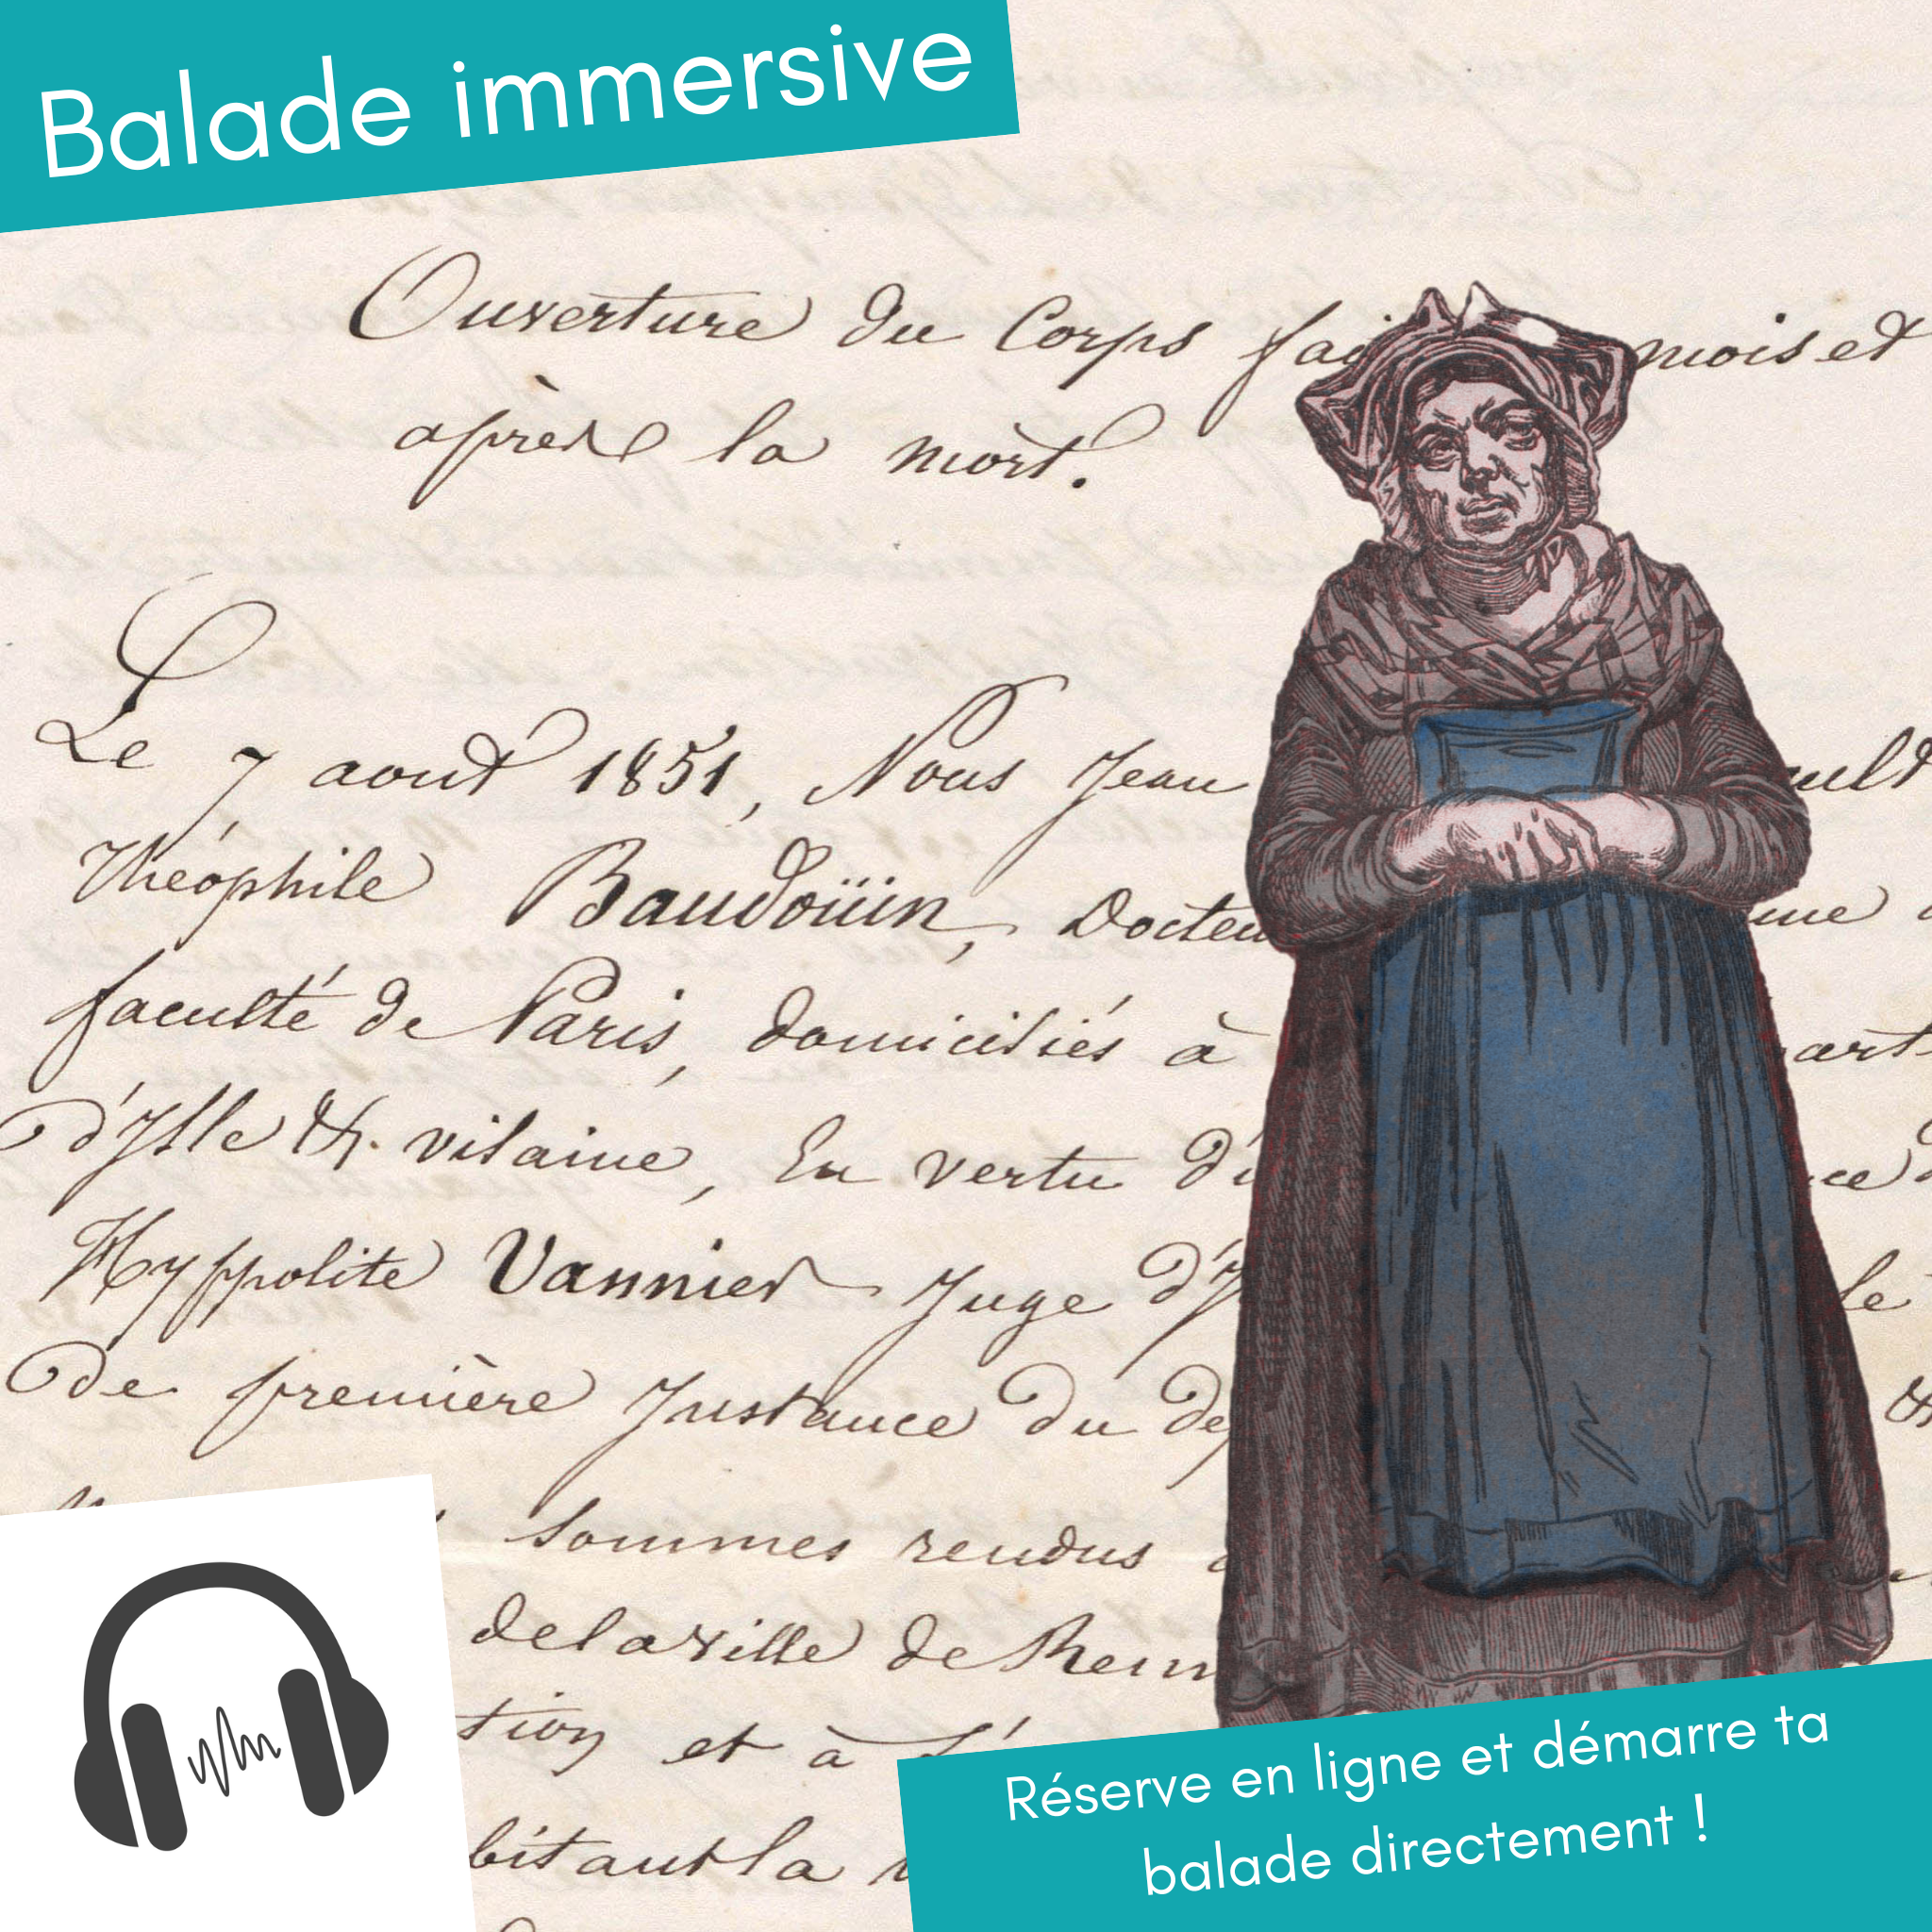 Balade immersive
Ouverture du Corps fai mois et
après la mort.
Le 7 aout 1851, Nous Jean ault
Théophile Baudoüin, Docteu me
faculté de Paris, domiciliés à part
d'Ille & vilaine, En vertu d' ce
Hyppolite Vannier Juge d'I le
de première Instance du dep &
sommes rendus
de la ville de Renn
tion et à l'
bitant la
Réserve en ligne et démarre ta
balade directement !